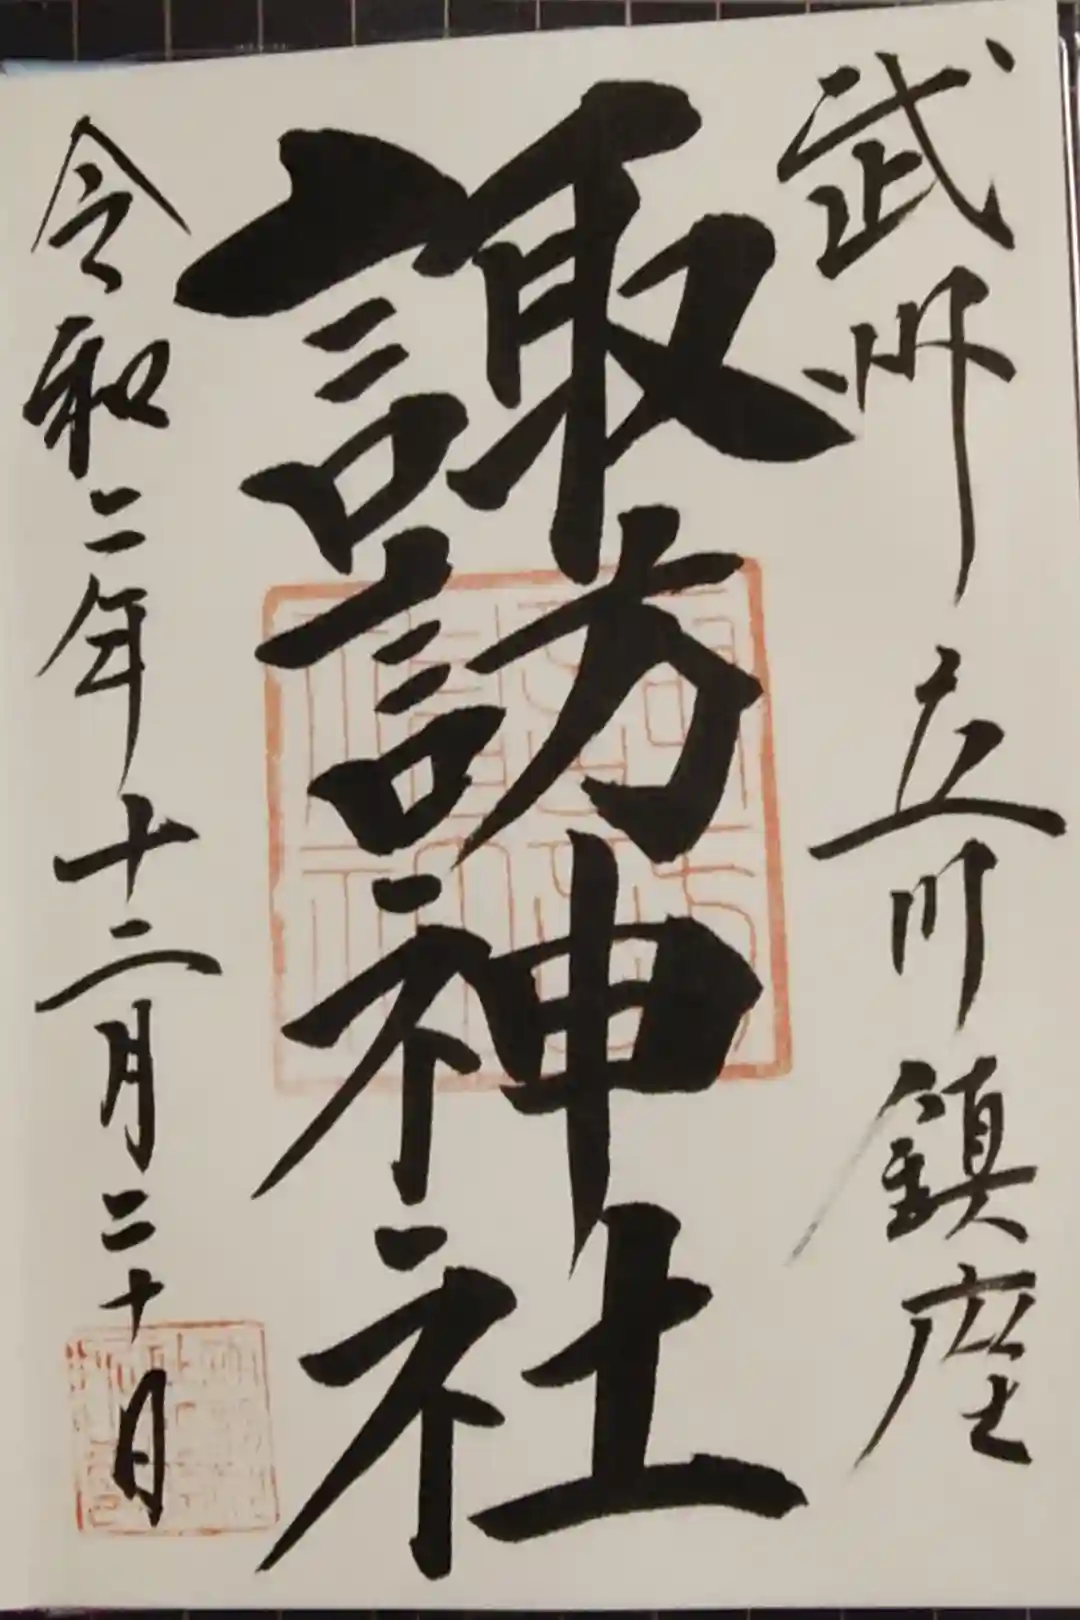 武州 立川 鎮座
諏訪神社
令和二年十二月二十日